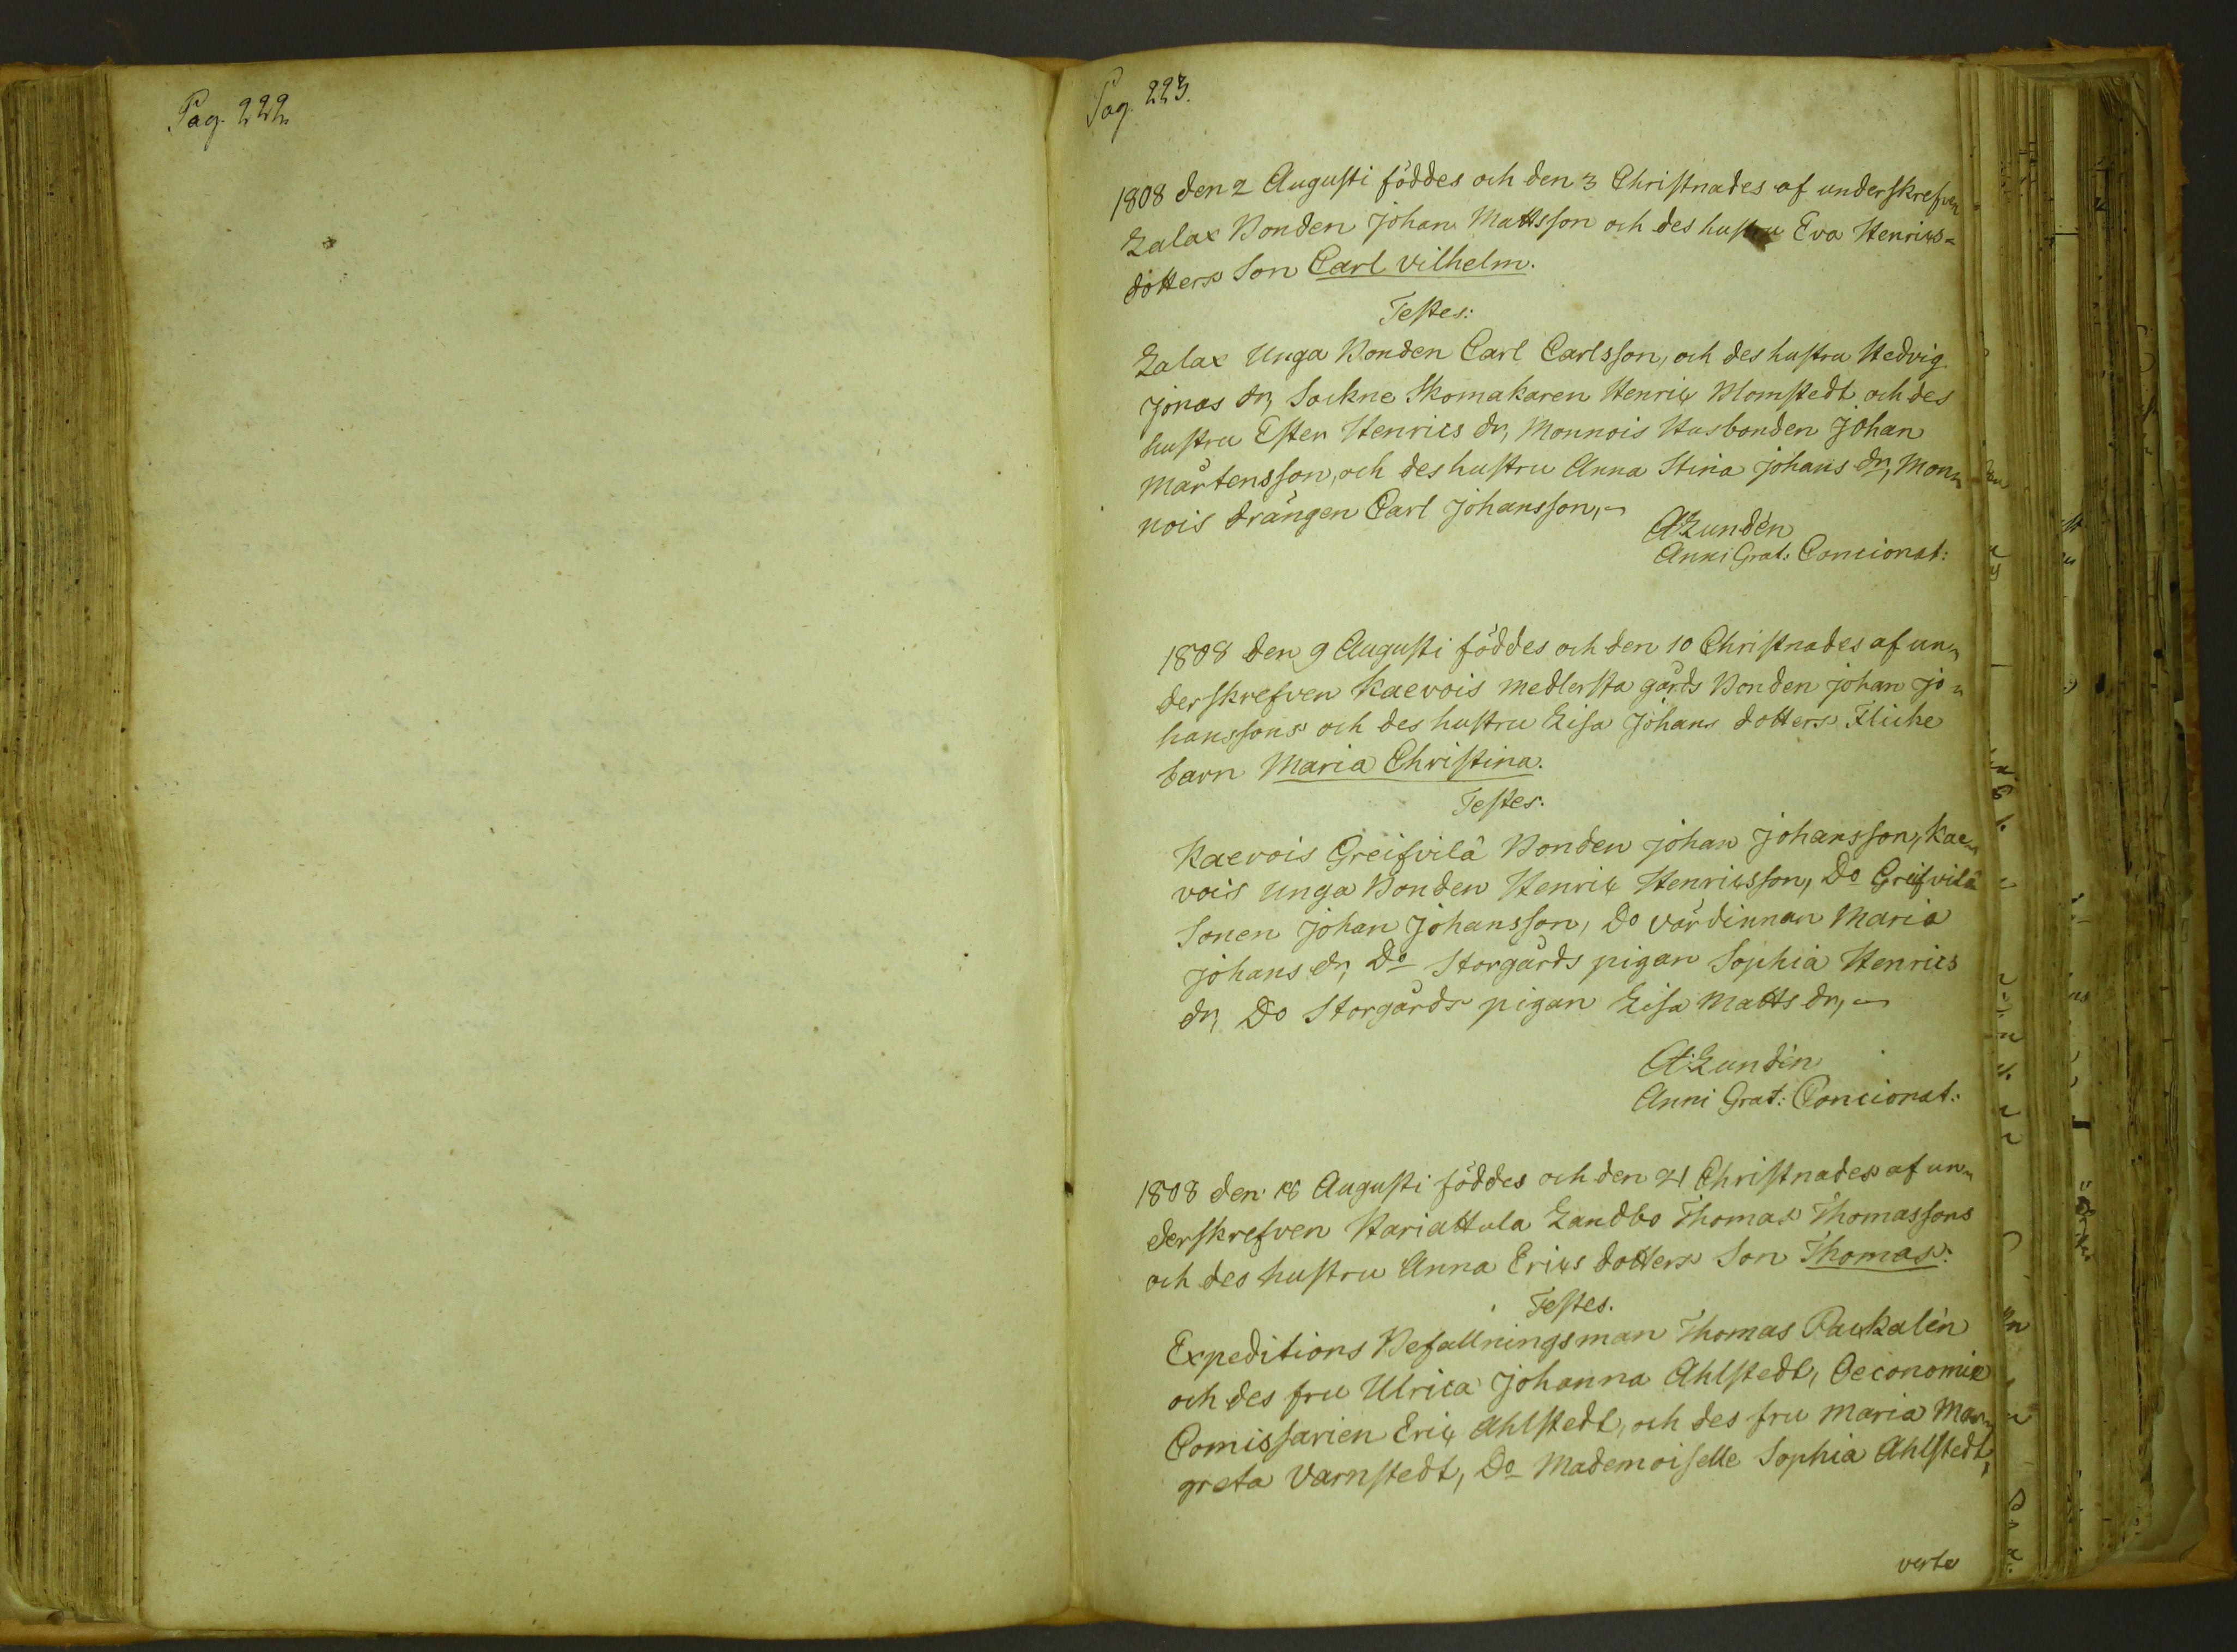 Pag. 222
Pag. 223.
1808 den 2 Augusti föddes och den 3 Christnades af underskrefven
Lalax Bonden Johan Mattsson och des hustru Eva Henrics-
dotters Son Carl Vilhelm.
Testes:
Lalax Unga Bonden Carl Carlsson, och des hustru Hedvig
Jonas dr, Sockne Skomakaren Henric Blomstedt och des
hustru Ester Henrics dr, Monnois Husbonden Johan
Mårtensson, och des hustru Anna Stina Johans dr, Mon-
nois drängen Carl Johansson,
A Lundén
Anni Grat: Concionat:
1808 den 9 Augusti föddes och den 10 Christnades af un-
derskrefven Kaevois medlersta gårds Bonden Johan Jo-
hanssons och des hustru Lisa Johans dotters Flicke
barn Maria Christina.
Testes.
Kaevois Greifvilä Bonden Johan Johansson, Kae-
vois Unga Bonden Henric Henricsson, Do Greifvilä
Sonen Johan Johansson, Do värdinnan Maria
Johans dr, Do Storgårds pigan Sophia Henrics
dr, Do Storgårds pigan Lisa Matts dr,
A: Lundén
Anni Grat: Concionat:
1808 den 18 Augusti föddes och den 21 Christnades af un-
derskrefven Hariattula Landbo Thomas Thomassons
och des hustru Anna Erics dotters Son Thomas.
Testes.
Expeditions Befallningsman Thomas Packalén
och des fru Ulrica Johanna Ahlstedt, Oeconomie
Comissarien Eric Ahlstedt, och des fru Maria Mar-
greta Varnstedt, Do Mademoiselle Sophia Ahlstedt,
verte